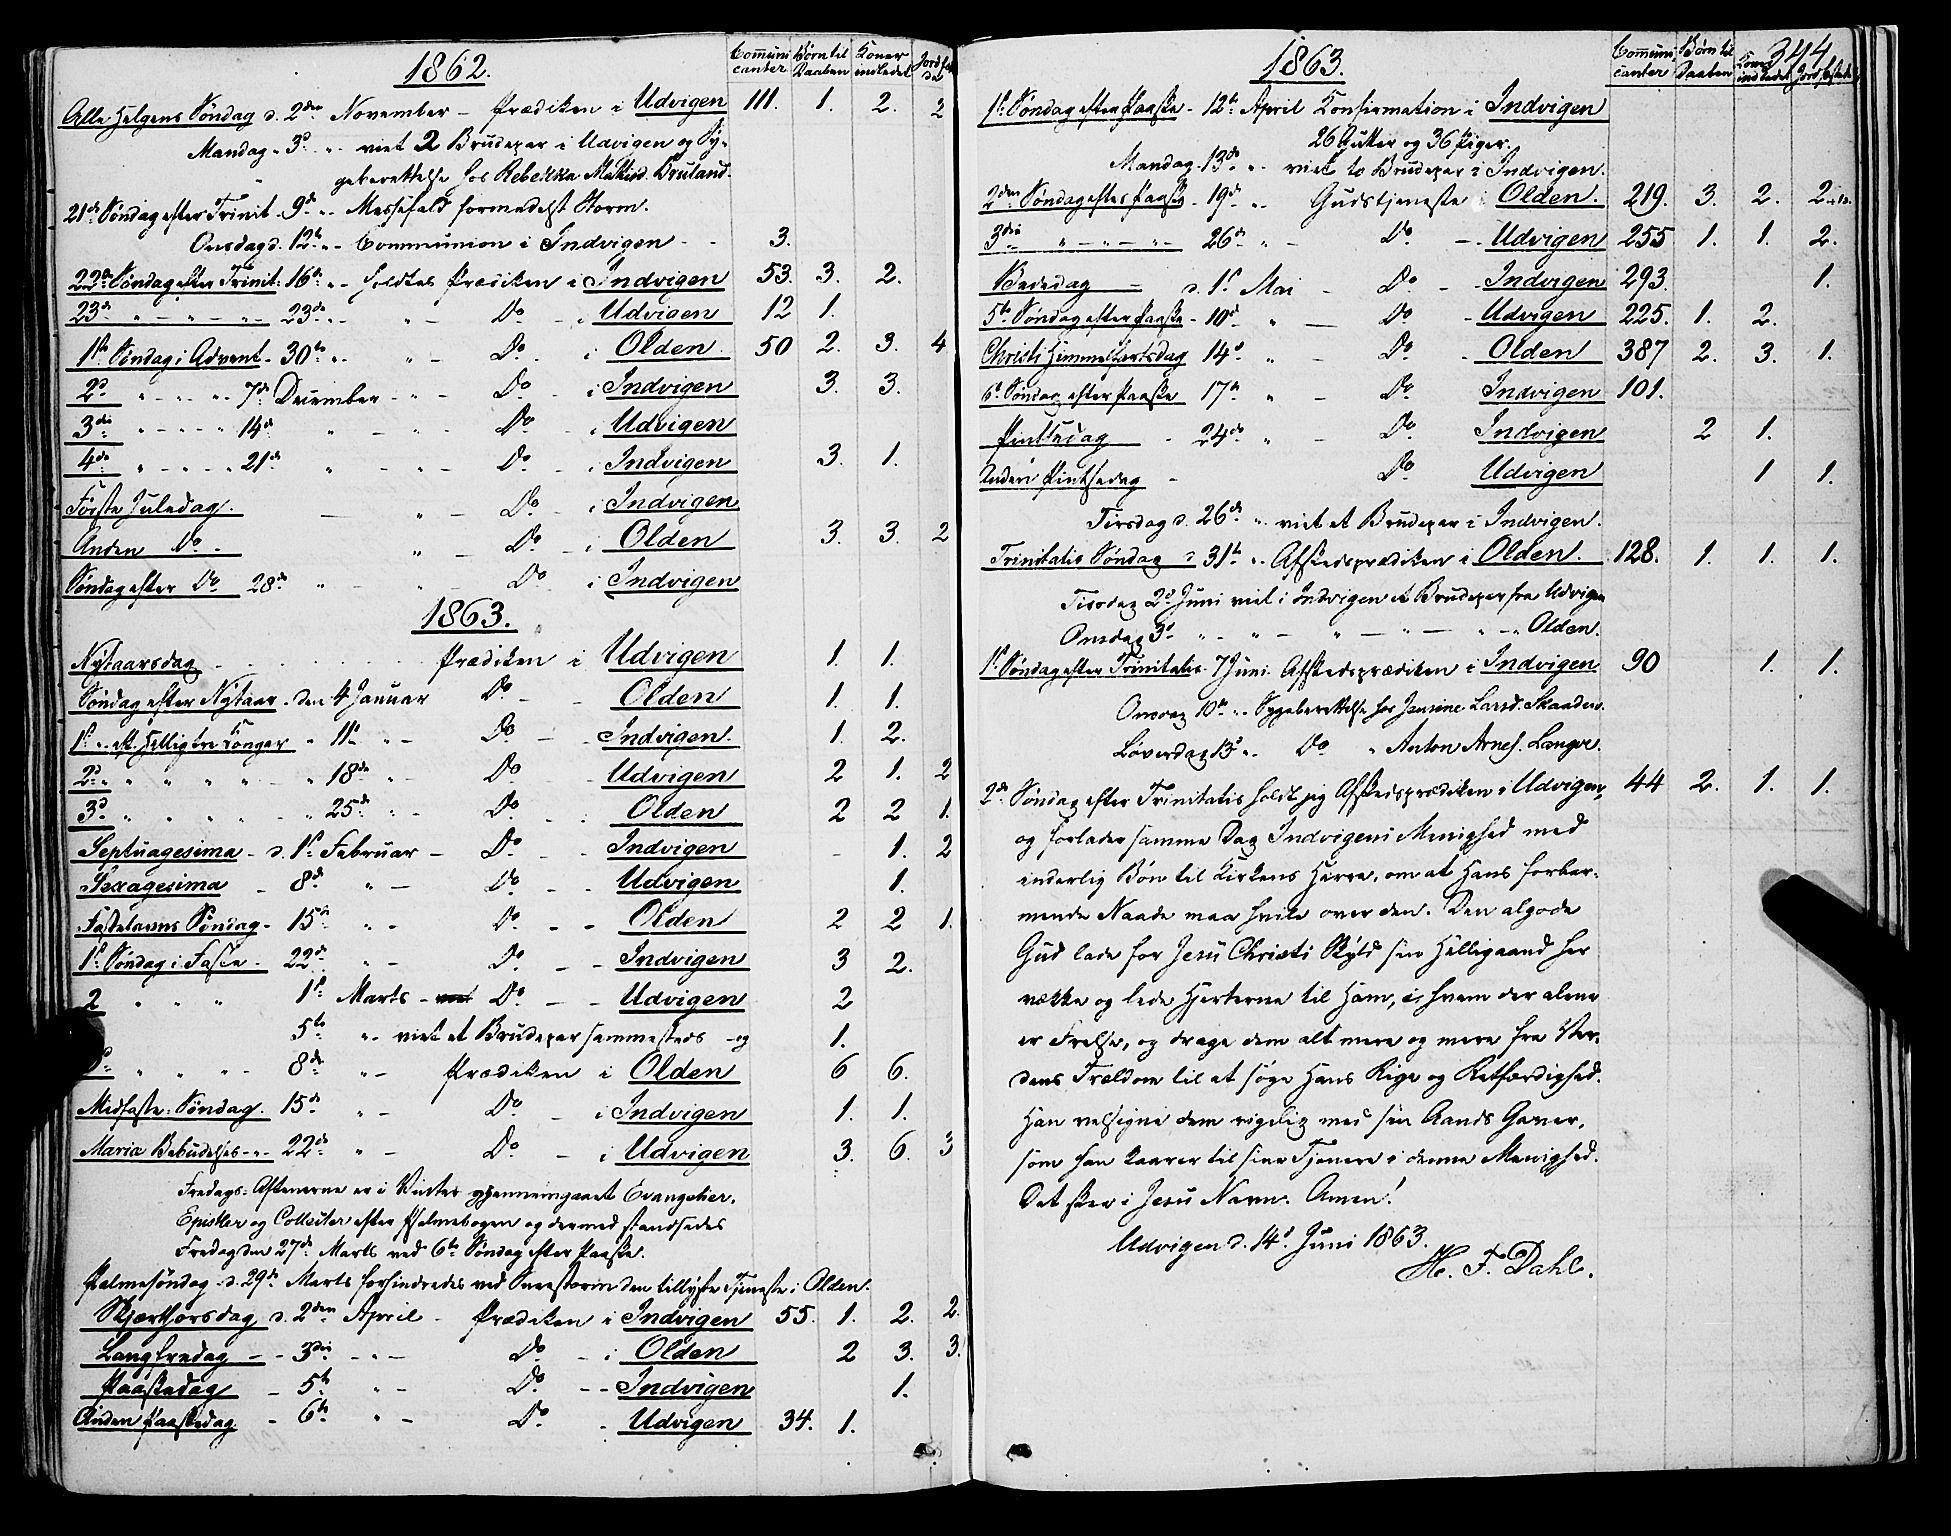 1862. Communicanter Børn til Daaben Koner indledet Jordfæstede
Alle Helgens Søndag d. 2den November - Prædiken i Udvigen 111. 1. 2. 2
Mandag " 3d " - viet 2 Brudepar i Udvigen og Sy-
geberettelse hos Rebekka Mathisd. Bruland.
21de Søndag efter Trinit. 9de " - Messefald formedelst Storm.
Onsdag d. 12te " - Communion i Indvigen - - 3.
22de Søndag efter Trinit. 16de " - holdtes Prædiken i Indvigen 53. 3. 2.
23de " - " - " - 23de " - " - Do - i Udvigen 12 1.
1ste Søndag i Advent - 30te " - " - Do - i Olden 50 2. 3. 4
2d " - " - " 7de December - " - Do - i Indvigen 3. 3.
3die " - " - " 14de " - " - Do - i Udvigen
4de " - " - " 21de " - " - Do - i Indvigen 3. 1.
Første Juledag. - " - Do - i Indvigen
Anden Do - " - Do - i Olden 3. 3. 2
Søndag efter Do 28de " - " Do - i Indvigen
1863.
Nytaarsdag - - - - - Prædiken i Udvigen 1. 1.
Søndag efter Nytaar - den 4 Januar Do - - Olden 1. 1.
1ste " - eft. Hellig tre Konger " 11te " - Do - - Indvigen 1. 2.
2d " " " " " - " 18de " - Do - Udvigen 2 1. 2
3d " " " " " - " 25de " - Do - Olden 2 2 1.
Septuagesima - d. 1ste Februar - Do - - Indvigen - 1. 2
Sexagesima - 8de " - Do - - Udvigen 1.
Fastelavns Søndag - 15de " - Do - - Olden 2 2 1.
1ste Søndag i Faste - 22de " - Do - - Indvigen 3 2.
2 " " " 1ste Marts - Do - - Udvigen 2
5te " - viet et Brudepar sammesteds - og 1.
" " " - 8de " - Prædiken i Olden 6 6.
Midfaste-Søndag. 15de " - Do - i Indvigen 1. 1.
Mariæ Bebudelses - " - 22de " - Do - i Udvigen 3. 6. 3
Fredags-Aftenerne er i Vinter gjennemgaaet Evangelier,
Epistler og Collecter efter Psalmebogen og dermed standsedes
Fredag den 27de Marts ved 6te Søndag efter Paaske.
Palmesøndag d. 29de Marts forhindredes ved Sneestorm den tillyste Tjeneste i Olden.
Skjærthorsdag d. 2den April - Prædiken i Indvigen 55. 1. 2. 2.
Langfredag - - 3die - " - Do - i Olden 2 3. 3.
Paaskedag - 5te " - Do - - Indvigen 1.
Anden Paaskedag - 6te " - Do - Udvigen 34. 1.
344
1863. Communicanter Børn til Daaben Koner indledet Jordfæstede
1ste Søndag efter Paaske - 12te April Konfirmation i Indvigen
26 Gutter og 36 Piger.
Mandag - 13de " - viet to Brudepar i Indvigen.
2den Søndag efter Paaske - 19de " - Gudstjeneste i Olden. 219. 3. 2. 2
3die " - " - " - 26de " - Do - - Udvigen 255 1. 1. 2.
Bededag - d. 1ste Mai - Do - - Indvigen 293. 1.
5te Søndag efter Paaske - 10de " - Do - Udvigen 225. 1. 2.
Christi Himmelfartsdag 14de " - Do - Olden 387 2. 3. 1.
6te Søndag efter Paaske 17de " - Do Indvigen 101.
Pintsedag - 24de " - Do. Indvigen 2 1.
Anden Pintsedag - Do Udvigen 1 1.
Tirsdag d. 26de " - viet et Brudepar i Indvigen.
Trinitatis Søndag d 31te " - Afskedsprædiken i Olden. 128. 1. 1. 1.
Tirsdag 2d Juni viet i Indvigen et Brudepar fra Udvigen
Onsdag 3d " - " - " - " - " - " Olden.
1ste Søndag efter Trinitatis - 7 Juni Afskedsprædiken i Indvigen 90 1. 1.
Onsdag 10de " - Sygeberettelse hos Jensine Larsd. Skaaden.
Løverdag 13de " - Do " Anton Arnes.
2den Søndag efter Trinitatis holdt jeg Afskedsprædiken i Udvigen, 44 2. 1. 1.
og forlader samme Dag Indvigens Menighed med
inderlig Bøn til Kirkens Herre, om at Hans forbar-
mende Naade maa hvile over den. Den algode
Gud lade for Jesu Christi Skyld sin Helligaand her
vække og lede Hjerterne til Ham, i hvem der alene
er Frelse, og drage dem alt mere og mere fra Ver-
dens Trældom til at søge Hans Rige og Retfærdighed.
Han velsigne dem rigelig med sin Aands Gaver,
som han kaarer til sine Tjenere i denne Menighed.
Det skee i Jesu Navn. Amen!
Udvigen d. 14de Juni 1863.
H. F. Dahl.